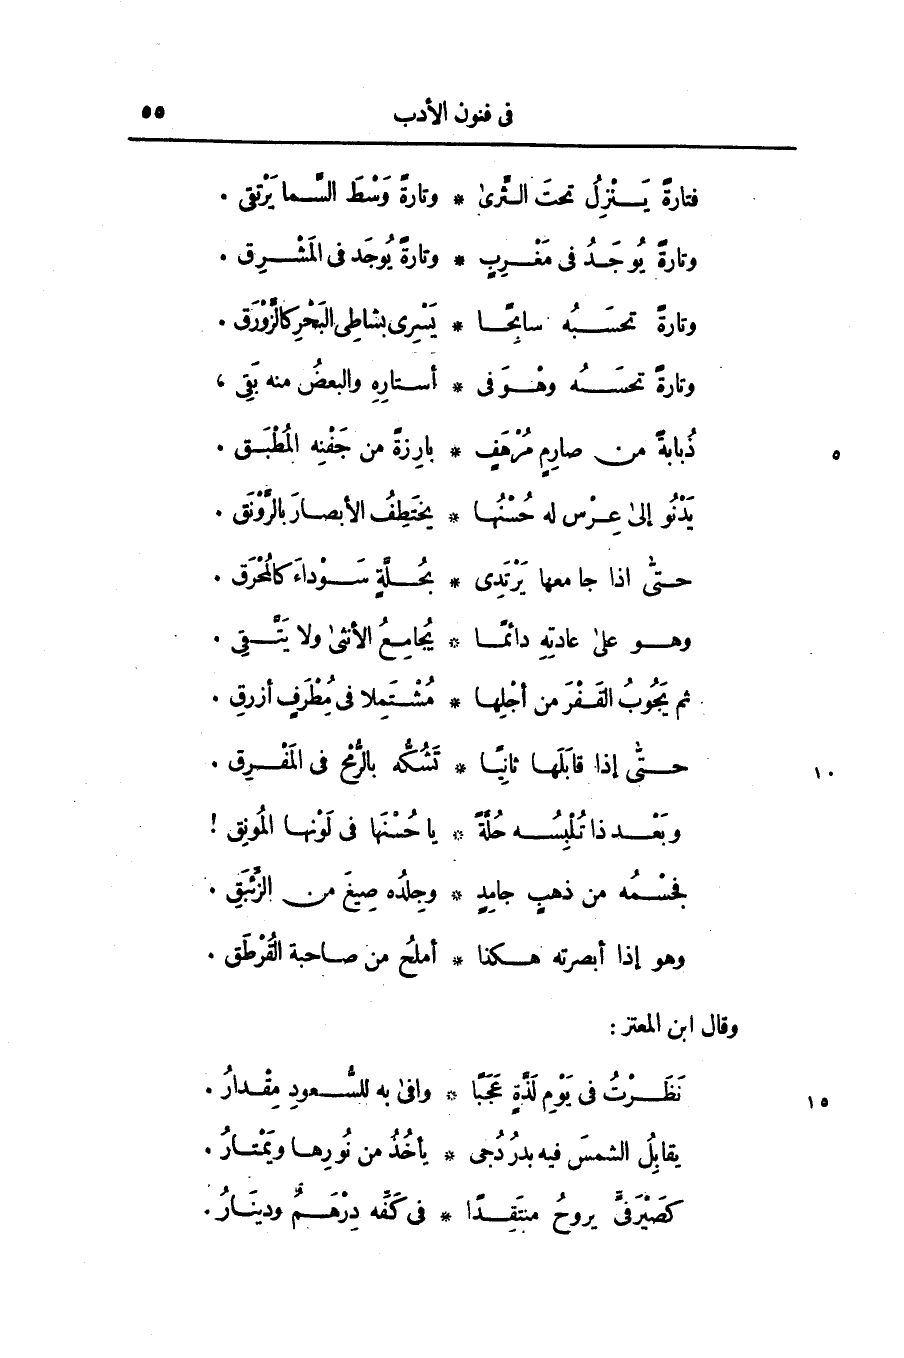 فى فنون الأدب ٥٥
فتارةً يَـنْزِلُ تحتَ الثَّرىٰ * وتارةً وَسْطَ السَّما يَرْتقى .
وتارةً يُوجَدُ فى مَغْرِبٍ * وتارةً يُوجَد فى المَشْرِق .
وتارةً تحسَبُه سابِحًا * يَسْرِى بشاطِى البَحْرِ كالزَّوْرَق .
وتارةً تحسَبُه وهْوَ فى * أستارِهِ والبعضُ منه بَقِى ،
ذُبابةً من صارِمٍ مُرْهَفٍ * بارِزةً من جَفْنِه المُطْبَق . ٥
يَدْنُو إلىٰ عِرْس له حُسْنُها * يختَطِفُ الأبصارَ بالرَّوْنَق .
حتّٰى اذا جامعها يَرْتَدِى * بحُلَّةٍ سَوْداءَ كالمُحْرَق .
وهو علىٰ عادتِهِ دائمًا * يُجامِعُ الأنثىٰ ولا يَتَّقِى .
ثم يَجُوبُ القَفْرَ من أجْلِها * مُشْتَمِلا فى مُطْرَفٍ أزرقِ .
حتّٰى إذا قابَلَها ثانِيًا * تَشُكُّه بالرُّمْح فى المَفْرِق . ١٠
وبَعْد ذا تُلْبِسُه حُلَّةً * يا حُسْنَها فى لَوْنها المُونِق !
فجسْمُه من ذهبٍ جامِدٍ * وجِلدُه صِيغَ من الزِّئْبَقِ .
وهو إذا أبصرته هكذا * أملَحُ من صاحبة القُرْطَق .
وقال ابن المعتز :
نَظَرْتُ فى يَوْمِ لَذَّةٍ عَجَبًا * وافىٰ به للسُّعودِ مِقْدارُ . ١٥
يقابِلُ الشمسَ فيه بدرُ دُجى * يأخُذُ من نُورِها ويَمْتارُ .
كصَيْرَفىٍّ يروحُ منتَقِدًا * فى كَفِّه دِرْهَمٌ ودينَارُ .